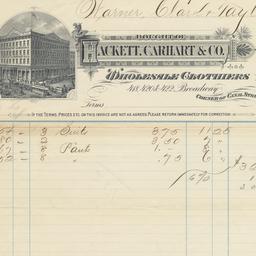 Warner, Clark & Tayl
BOUGHT OF
HACKETT, CARHART & CO.
WHOLESALE CLOTHIERS
418, 420 & 422, Broadway
CORNER OF CANAL STRE
Terms
IF THE TERMS, PRICES ETC. ON THIS INVOICE ARE NOT AS AGREED, PLEASE RETURN IMMEDIATELY FOR CORRECTION.
3 Suits 3.75 11 25
2 " 3.50 7 "
8 Pants 1.– 8 "
8 " .75 6 "
6%